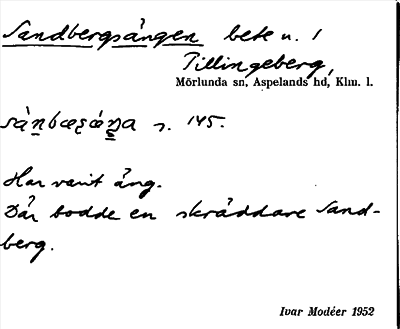 Sandbergsängen bete u. 1
Tillingeberg,
Mörlunda sn, Aspelands hd, Klm. l.
s. 145.
Har varit äng.
Där bodde en skräddare Sand-
berg.
Ivar Modéer 1952